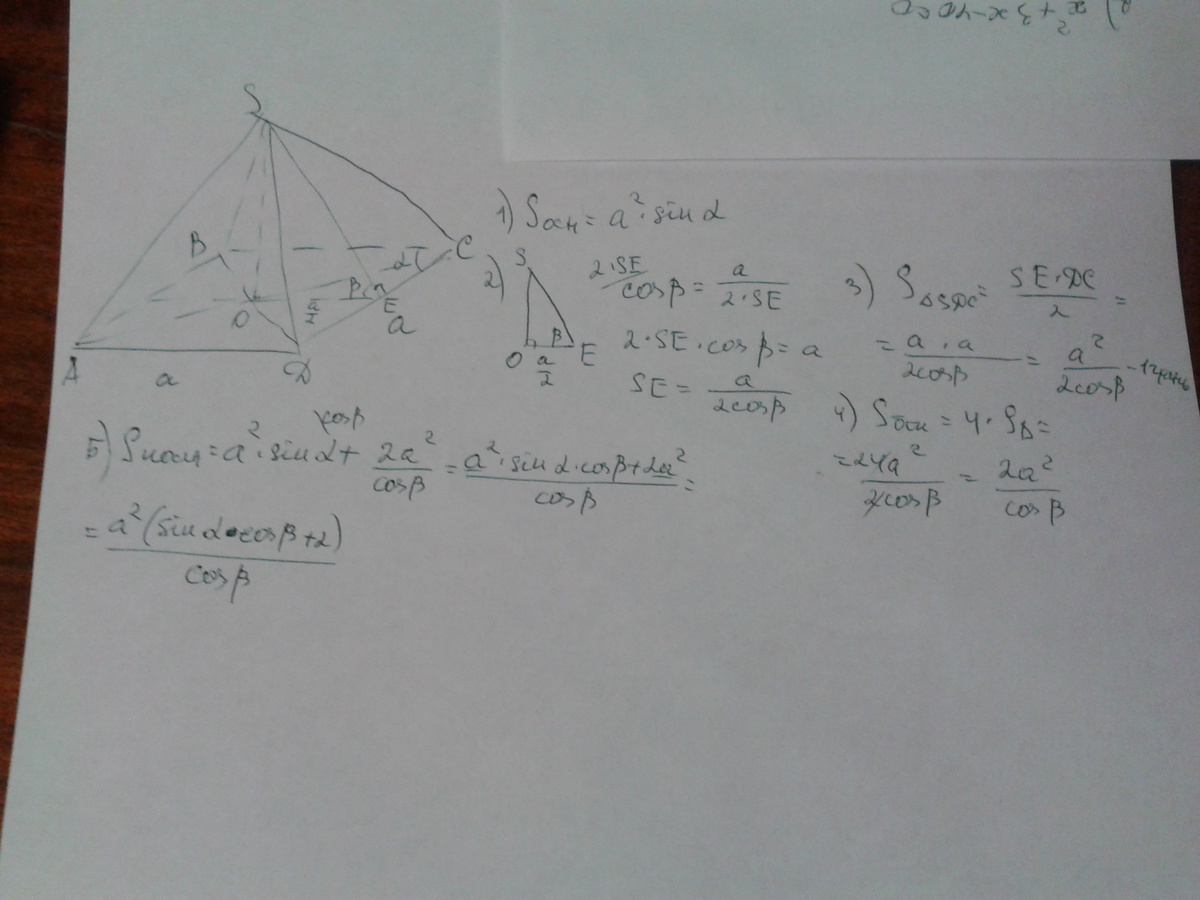 2) x² + 3x - 40 = 0
S
B
C
α
β
O
a/2
E
a
A
a
D
1) Sосн = a² · sin α
2) S
O a/2 E
β
2·SE
cos β = a/(2·SE)
2·SE·cos β = a
SE = a/(2cos β)
3) S△SDC = (SE·DC)/2 =
= (a·a)/(2cos β) = a²/(2cos β)
4) Sбок = 4·S△ =
= 4a²/(2cos β) = 2a²/cos β
5) Sполн = a²·sin α + 2a²/cos β = (a²·sin α·cos β + 2a²)/cos β =
= a²(sin α·cos β + 2)/cos β